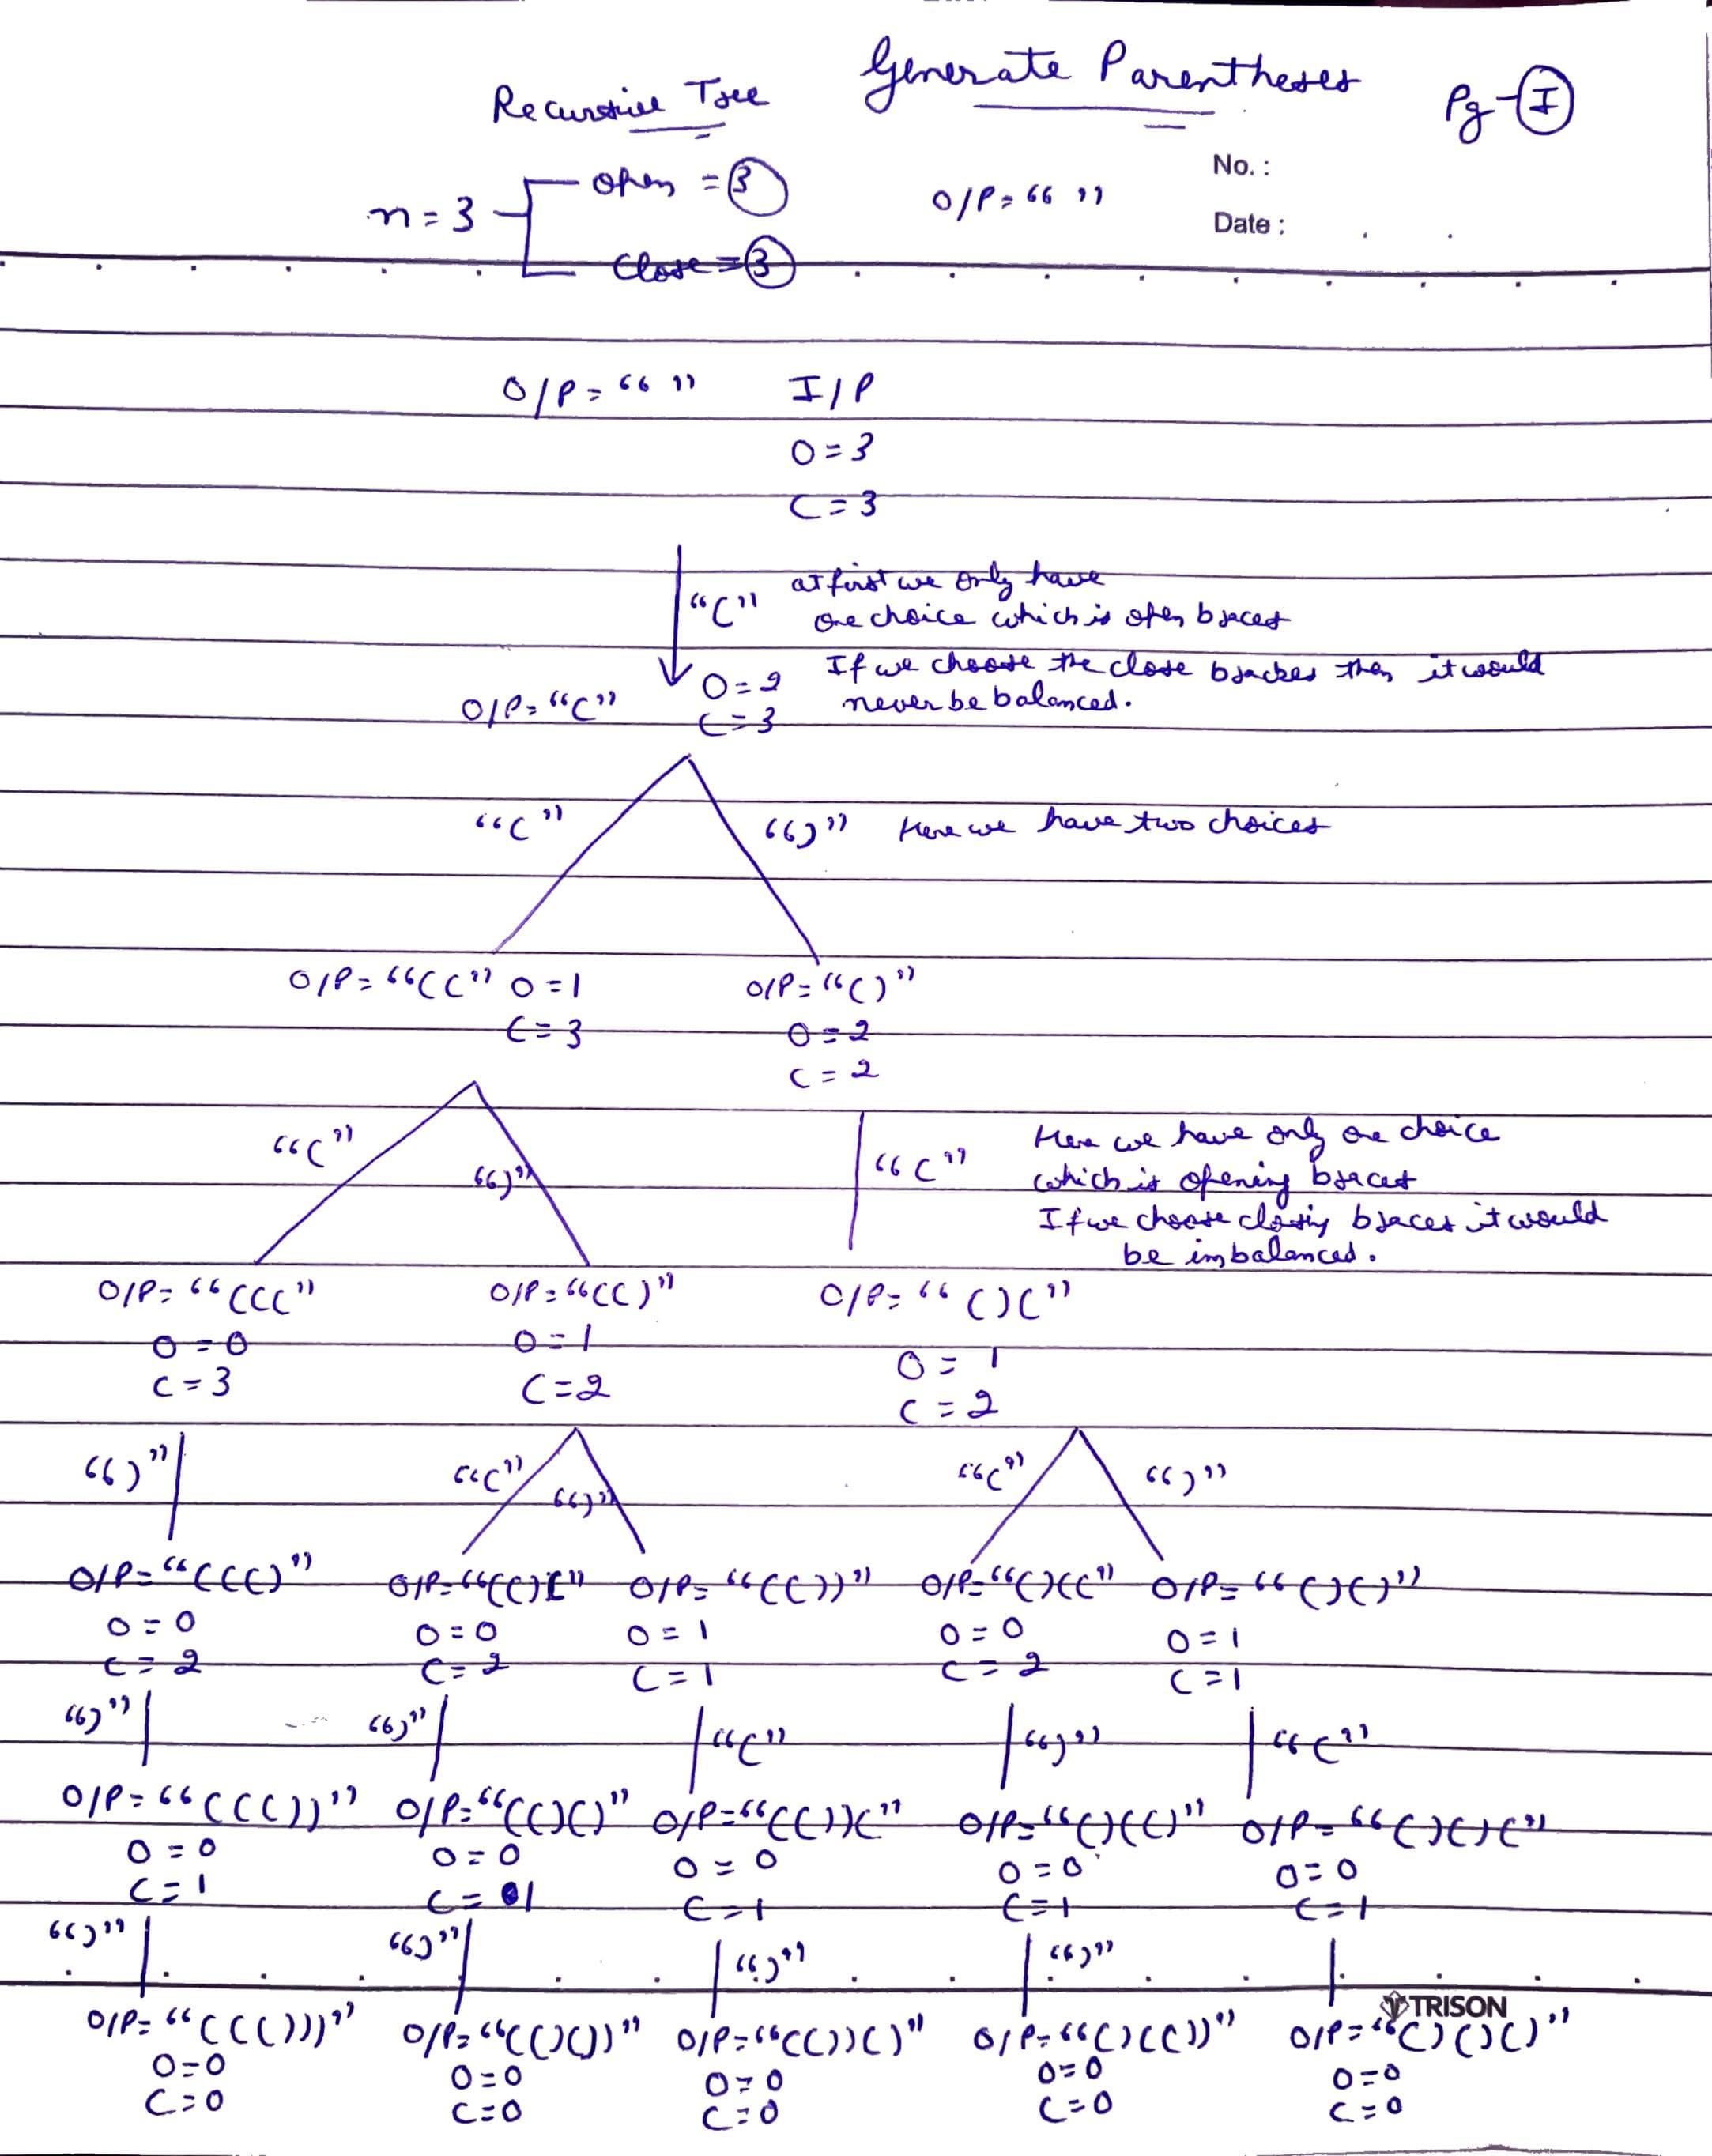 Generate Parentheses
Recursive Tree
Pg-I
No. :
Date :
n = 3
open = 3
close = 3
O/P = “ ”
O/P = “ ” I/P
O = 3
C = 3
“(” at first we only have
one choice which is open braces
If we choose the close brackes then it would
never be balanced.
O/P = “(” O = 2
C = 3
“(” “)” Here we have two choices
O/P = “((” O = 1 O/P = “()”
C = 3 O = 2
C = 2
“(” “)” “(” Here we have only one choice
which is opening braces
If we choose closing braces it would
be imbalanced.
O/P = “(((” O/P = “(()” O/P = “()(”
O = 0 O = 1 O = 1
C = 3 C = 2 C = 2
“)” “(” “)” “(” “)”
O/P = “((()” O/P = “(()(” O/P = “(())” O/P = “()((” O/P = “()()”
O = 0 O = 0 O = 1 O = 0 O = 1
C = 2 C = 2 C = 1 C = 2 C = 1
“)” “)” “(” “)” “(”
O/P = “((())” O/P = “(()()” O/P = “(())(” O/P = “()(()” O/P = “()()(”
O = 0 O = 0 O = 0 O = 0 O = 0
C = 1 C = 1 C = 1 C = 1 C = 1
“)” “)” “)” “)”
TRISON
O/P = “((()))” O/P = “(()())” O/P = “(())()” O/P = “()(())” O/P = “()()()”
O = 0 O = 0 O = 0 O = 0 O = 0
C = 0 C = 0 C = 0 C = 0 C = 0